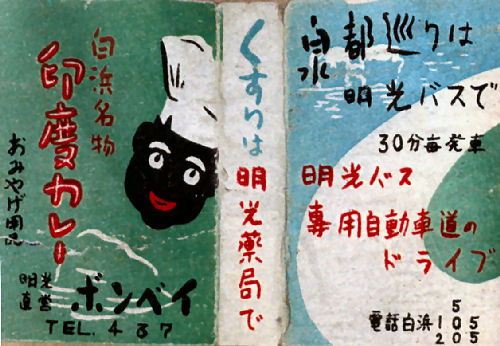 白浜名物
印度カレー
おみやげ用品
明光直営
ボンベイ
TEL. 487
くすりは
明光薬局で
泉都巡りは
明光バスで
30分毎発車
明光バス
専用自動車道の
ドライブ
電話白浜
5
105
205